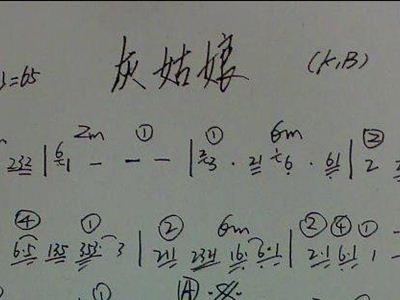 灰姑娘 (K,B)
=65
2m ① ① 6m ②
232 | 6 1 - - - | 2 3 · 21 1 6 · 61 | 2
④ ① ② 6m ② ④ ①
6·5 135 353· 3 | 211 2321 16· 6·1 | 2·1 6·1 1 -
① A